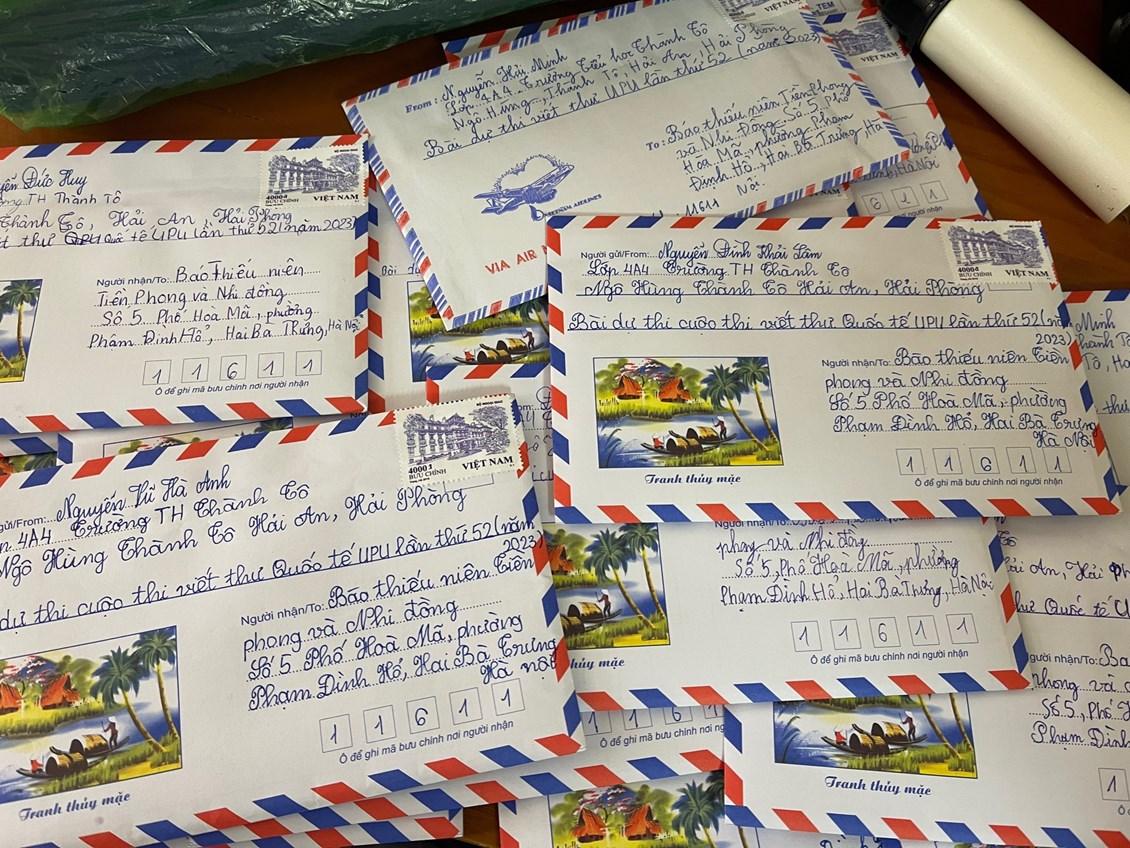 From: Nguyễn Hữu Minh
Lớp 4A4 Trường Tiểu học Thành Tô
Ngô Hùng, Thành Tô, Hải An, Hải Phòng
Bài dự thi viết thư UPU lần thứ 52 (năm 2023)
To: Báo thiếu niên Tiền Phong
và Nhi Đồng Số 5, Phố
Hoà Mã, phường Phạm
Đình Hổ, Hai Bà Trưng Hà
Nội.
VIETNAM AIRLINES
VIA AIR
TEM
VIỆT NAM
Hà Nội
6 2 1
người nhận
Đức Huy
TH Thành Tô
Thành Tô, Hải An, Hải Phòng
thư UPU Quốc tế UPU lần thứ 52 (năm 2023)
VIỆT NAM
Người nhận/To: Báo Thiếu niên
Tiền Phong và Nhi đồng
Số 5, Phố Hoà Mã, phường
Phạm Đình Hổ, Hai Bà Trưng, Hà Nội
1 1 6 1 1
Ô để ghi mã bưu chính nơi người nhận
Người gửi/From: Nguyễn Đình Khải Lâm
Lớp 4A4 Trường TH Thành Tô
Ngô Hùng Thành Tô Hải An, Hải Phòng
4000đ
BƯU CHÍNH
VIỆT NAM
Bài dự thi cuộc thi viết thư Quốc tế UPU lần thứ 52 (năm
2023)
Người nhận/To: Báo thiếu niên Tiền
phong và Nhi đồng
Số 5 Phố Hoà Mã, phường
Phạm Đình Hổ, Hai Bà Trưng
Hà Nội
1 1 6 1 1
Ô để ghi mã bưu chính nơi người nhận
Tranh thủy mặc
gửi/From: Nguyễn Vũ Hà Anh
4A4 Trường TH Thành Tô
Ngô Hùng Thành Tô Hải An, Hải Phòng
4000đ
BƯU CHÍNH
VIỆT NAM
dự thi cuộc thi viết thư Quốc tế UPU lần thứ 52 (năm
2023)
Người nhận/To: Báo thiếu niên Tiền
phong và Nhi đồng
Số 5 Phố Hoà Mã, phường
Phạm Đình Hổ, Hai Bà Trưng
Hà nội
1 1 6 1 1
Ô để ghi mã bưu chính nơi người nhận
Tranh thủy mặc
phong và Nhi đồng
Số 5, Phố Hoà Mã, phường
Phạm Đình Hổ, Hai Bà Trưng, Hà Nội
1 1 6 1 1
Ô để ghi mã bưu chính nơi người nhận
thủy mặc
1 1 6 1
Ô để ghi mã bưu chính
Minh
An, Hải
Quốc tế
gửi/To: Ba
phong và
Số 5, Phố
Phạm Đình
1
Ô để ghi mã
Tranh thủy mặc